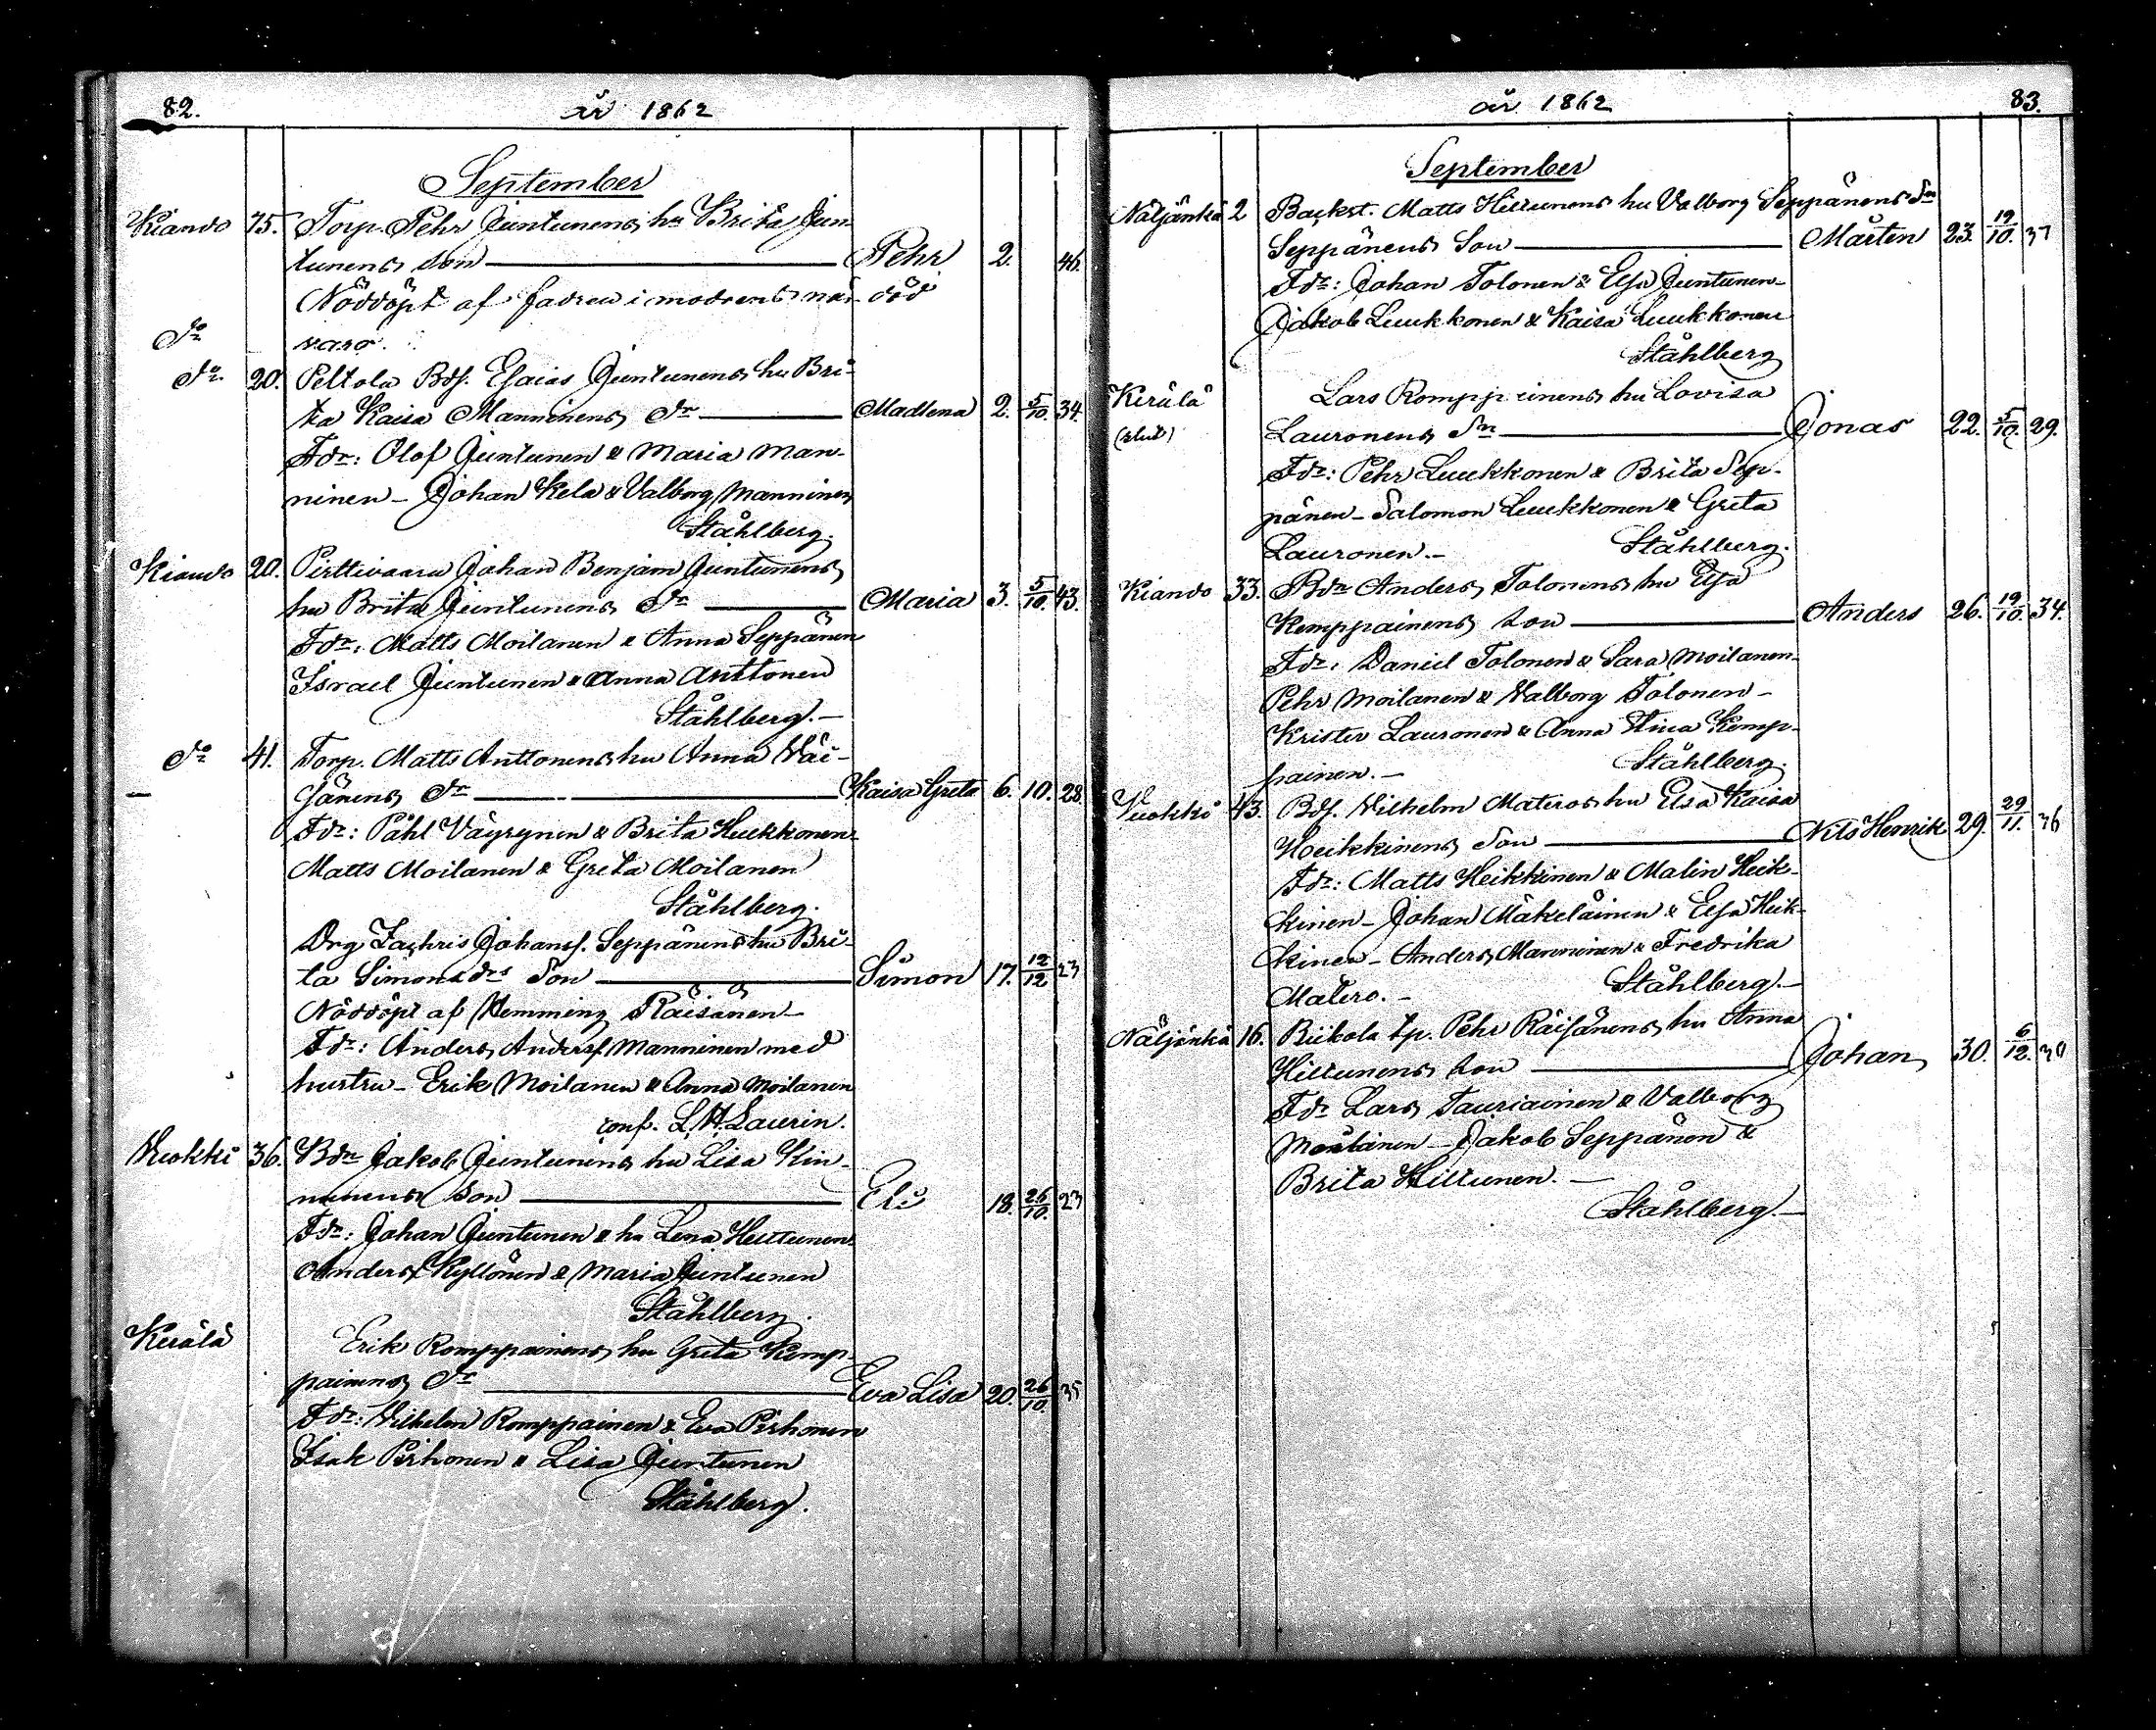 82. år 1862
September
Kiando 75. Torp. Pehr Juntunens hu Brita Jun-
tunens son Pehr 2. 46.
Nöddöpt af fadren i modrens när- död
Do varo.
Do 20. Peltola Bdf. Esaias Juntunens hu Bri-
ta Kaisa Manninens dr Madlena 2. 5/10. 34.
Fdr: Olof Juntunen & Maria Man-
ninen - Johan Kela & Valborg Manninen
Ståhlberg.
Kiando 20. Perttivaara Johan Benjam Juntunens
hu Brita Juntunens dr Maria 3. 5/10. 43.
Fdr: Matts Moilanen & Anna Seppänen
Israel Juntunen & Anna Anttonen
Ståhlberg. -
Do 41. Torp. Matts Anttonens hu Anna Väi-
sänens dr Kaisa Greta 6. 10. 28.
Fdr: Påhl Väyrynen & Brita Huckkonen
Matts Moilanen & Greta Moilanen
Ståhlberg.
Drg Zachris Johansf. Seppänens hu Bri-
ta Simonsdrs Son Simon 17. 12/12 23
Nöddöpt af Hemming Räisänen -
Fdr: Anders Andersf. Manninen med
hustru - Erik Moilanen & Anna Moilanen
conf. L.H. Laurin.
Vuokki 36. Bdn Jakob Juntunens hu Lisa Kin-
nunens son Eli 18. 26/10. 23
Fdr: Johan Juntunen & hu Lena Huttunen
Anders Kyllönen & Maria Juntunen
Ståhlberg.
Kerälä Erik Romppainens hu Greta Kemp-
painens dr Eva Lisa 20. 26/10. 35
Fdr: Vilhelm Romppainen & Eva Pirhonen
Isak Pirhonen & Lisa Juntunen
Ståhlberg.
år 1862 83.
September
Näljänkä 2 Backst. Matts Hiltunens hu Valborg Seppänens Sn
Seppänens Son Mårten 23. 19/10. 37
Fdr: Johan Tolonen & Elsa Juntunen -
Jakob Luukkonen & Kaisa Luukkonen
Ståhlberg
Kerälä Lars Romppainens hu Lovisa
(slut) Lauronens Sn Jonas 22. 5/10. 29.
Fdr: Pehr Luukkonen & Brita Sep-
pänen - Salomon Luukkonen & Greta
Lauronen. - Ståhlberg.
Kiando 33. Bdn Anders Tolonens hu Elsa
Kemppainens son Anders 26. 19/10. 34.
Fdr: Daniel Tolonen & Sara Moilanen -
Pehr Moilanen & Valborg Tolonen -
Krister Lauronen & Anna Stina Kemp-
painen. - Ståhlberg.
Vuokki 43. Bdf. Vilhelm Materos hu Elsa Kaisa
Heikkinens Son Nils Henrik 29. 29/11. 36
Fdr: Matts Heikkinen & Malin Heik-
kinen - Johan Mäkeläinen & Elsa Heik-
kinen - Anders Manninen & Fredrika
Matero. - Ståhlberg. -
Näljänkä 16. Riekola tp. Pehr Räisänens hu Anna
Hiltunens son Johan 30. 6/12. 30
Fdr Lars Tauriainen & Valborg
Moilanen - Jakob Seppänen &
Brita Hiltunen. -
Ståhlberg. -